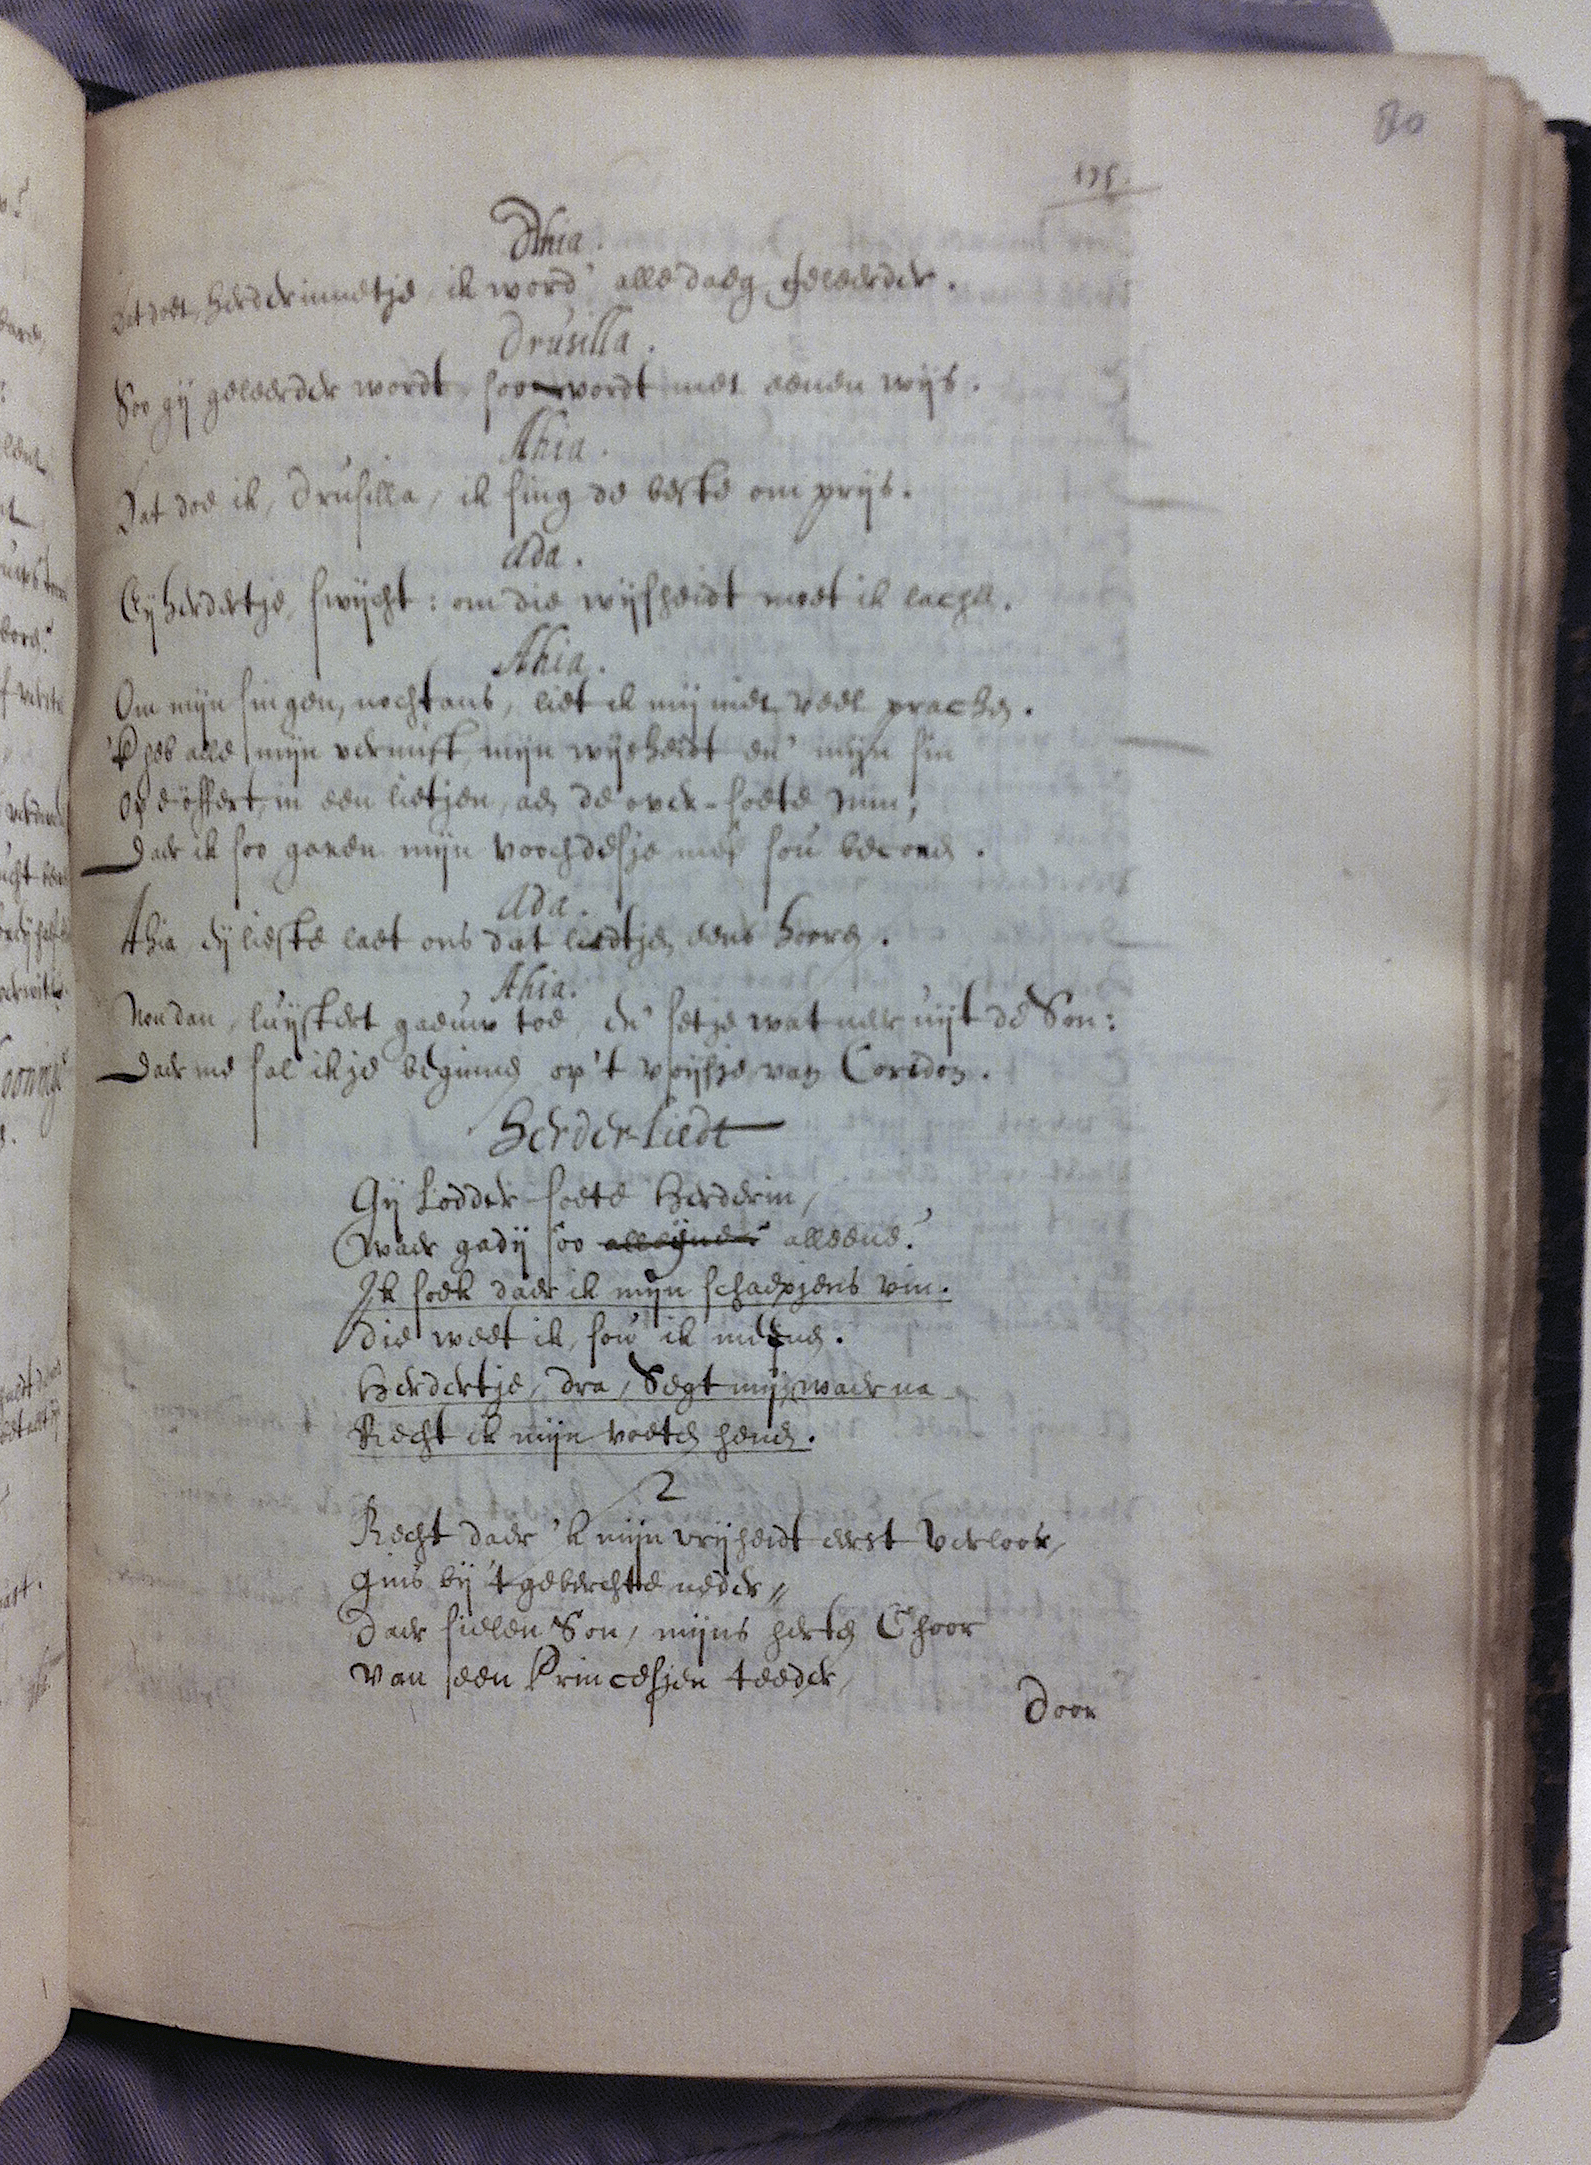 80
175.
Ahia.
Dat doet, herderinnetje, ik word' alle daeg geleerder.
Drusilla.
Soo gij geleerder wordt, soo wordt met eenen wijs.
Ahia.
Dat doe ik, Drusilla, ik sing de beste om prijs.
Ada.
Eij herdertje, swijcht: om die wijsheidt moet ik lachen.
Ahia.
Om mijn singen, nochtans, liet ik mij niet veel prachen.
'K heb alle mijn vernuft, mijn wijsheidt en' mijn sin
op eöffert, in een lietjen, aen de over-soete min,
Daer ik soo gaeren mijn voochdesje mee sou beconen.
Ada.
Ahia, dij liefste laet ons dat liedtjen eens hooren.
Ahia.
Nou dan, luijstert gaeuw toe, en' setje wat neer uijt de Son:
Daer me sal ik je beginnen op 't voijsje van Coredon.
Herder-Liedt
Gij Lodder-soete Herderin,
Waer gadij soo alleijne? alleene?
Ik soek daer ik mijn schaepjens vin.
Die weet ik, sou ik meene.
Herdertje, dra, Segt mij, waer na
Recht ik mijn voeten henen.
2
Recht daer 'k mijn vrijheidt eerst verloor,
gins bij 't geberchte neder,,
Daer sielen Son, mijns herten Choor
van een Princesjen teeder,
Door